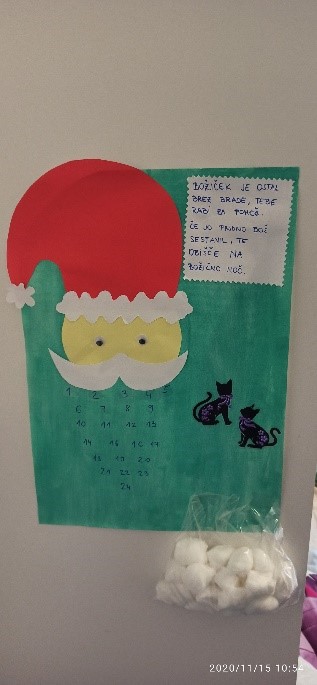 BOŽIČEK JE OSTAL
BREZ BRADE, TEBE
RABI ZA POMOČ.
ČE JO PRIDNO BOŠ
SESTAVIL, TE
OBIŠČE NA
BOŽIČNO NOČ.
1 2 3 4 5
6 7 8 9
10 11 12 13
14 15 16 17
18 19 20
21 22 23
24
2020/11/15 10:54